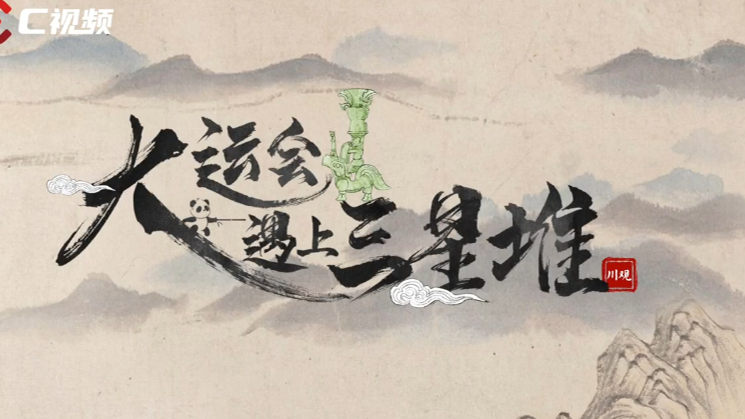 C视频
大运会
遇上三星堆
川观